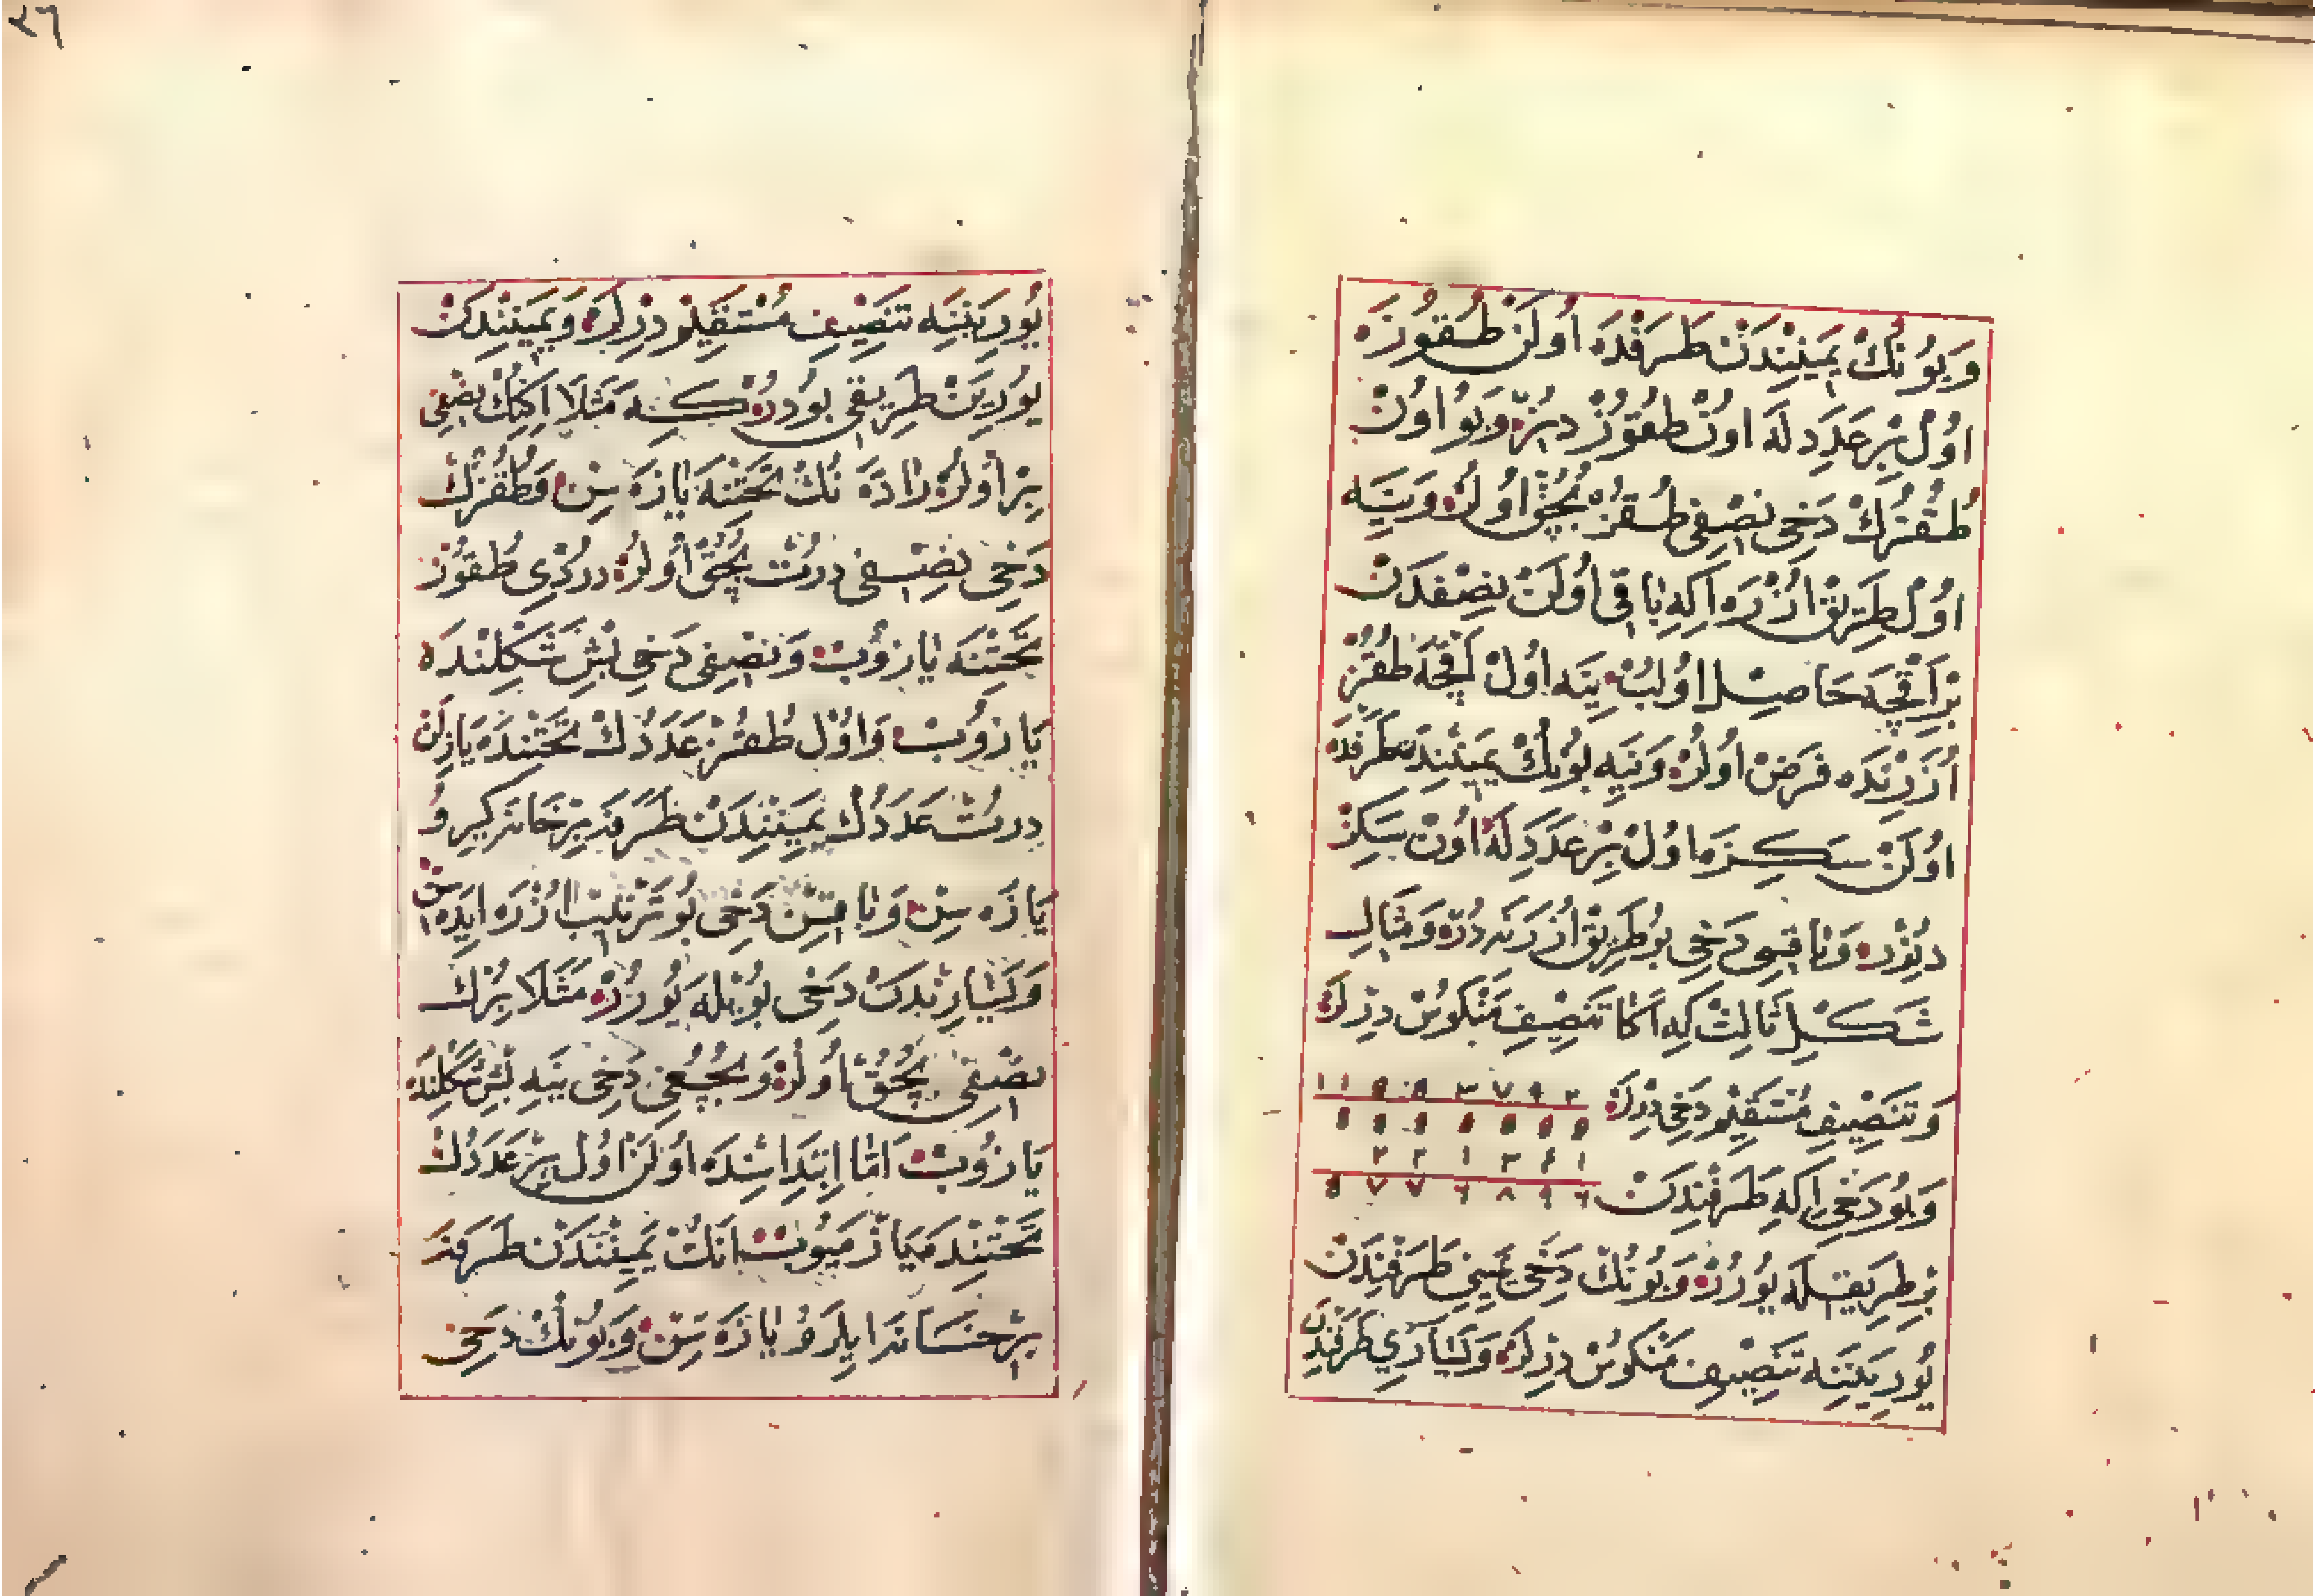 وَبُو نُكْ يَمِينِنْدَنْ طَرَفْدَه اُولَنْ طُقُوزَه
اوُلْ بِرْ عَدَدِ لَه اوُنْ طُقُوزْ دِيرُزْ وَبُو اوُنْ
طُقُزُكْ دَخِى نِصْفِى طُقُزْ بُچُقْ اوُلُرْ وَيِنَه
اوُلْ طَرِيقْ اُزْرَه اكِه بَاقِى اُولَنْ نِصْفدَنْ
بِرْ اَقْچَه حَاصِلْ اوُلُبْ يِنَه اوُلْ اَقْچَه طُقُزْ
اُزَرِنْدَه فَرَضْ اوُلُرْ وَيِنَه بُونُكْ يَمِينِنْدَنْ طَرَفْدَه
اوُلَنْ سَكِز اوُلْ بِرْ عَدَدِ لَه اوُنْ سَكِزْ
دِيرُزْ وَبَاقِيسِى دَخِى بُو طَرِيقْ اُزَرَنَه دُرْ وَمِثَالِ
شَكْلِ ثَالِثْ كِه اَكَا تَنْصِيفِ مَنْكُوسْ دِرْلَرْ
وَتَنْصِيفِ مُسْتَقِيلُو دَخِى دِرْلَرْ
وَبُو دَخِى اِكِه طَرَفِنْدَنْ
بِرْ طَرِيقْلَه يُورُرْ وَبُونُكْ دَخِى يَمِينِ طَرَفِنْدَنْ
يُورِيَنِنَه تَنْصِيفِ مَنْكُوسْ دِرْلَرْ وَيَسَارِى طَرَفِنْدَنْ
٢٦
يُورِيَنِنَه تَنْصِيفِ مُسْتَقِيلُو دِرْلَرْ وَيَمِينِنْدَنْ
يُورِيَنْ طَرِيقِى بُودُرْ كِه مَثَلَا اِكِنِكْ نِصْفِى
بِرْ اُولُرْ نُكْ تَحْتِنَه يَازَه سِنْ وَطُقُزُكْ
دَخِى نِصْفِى دُرْتْ بُچُقْ اُولُرْ دُرْدِى طُقُوزْ
تَحْتِنَه يَازُوبْ وَنِصْفِى دَخِى بَشْ شَكْلِنْدَه
يَازُوبْ وَاوُلْ طُقُزْ عَدَدُكْ تَحْتِنْدَه يَازِلَنْ
دُرْتْ عَدَدُكْ يَمِينِنْدَنْ طَرَفَه بِرْ خَانَه كِيرُو
يَازَه سِنْ وَبَاقِيسِنْ دَخِى بُو تَرْتِيبْ اُزْرَه ايدَه سِنْ
وَيَسَارِنْدَنْ دَخِى بُويْلَه يُورُرْ مَثَلَا بِرُكْ
نِصْفِى بُچُقْ اُولُرْ وَبُچُغِى دَخِى يِنَه بَشْ شَكْلِنْدَه
يَازُوبْ اَمَّا اِبْتِدَاسِنْدَه اوُلَنْ اوُلْ بِرْ عَدَدُكْ
تَحْتِنْدَه يَازْمَيُوبْ اَنُكْ يَمِينِنْدَنْ طَرَفَه
بِرْ خَانَه اِيلَرُو يَازَه سِنْ وَبُونُكْ دَخِى